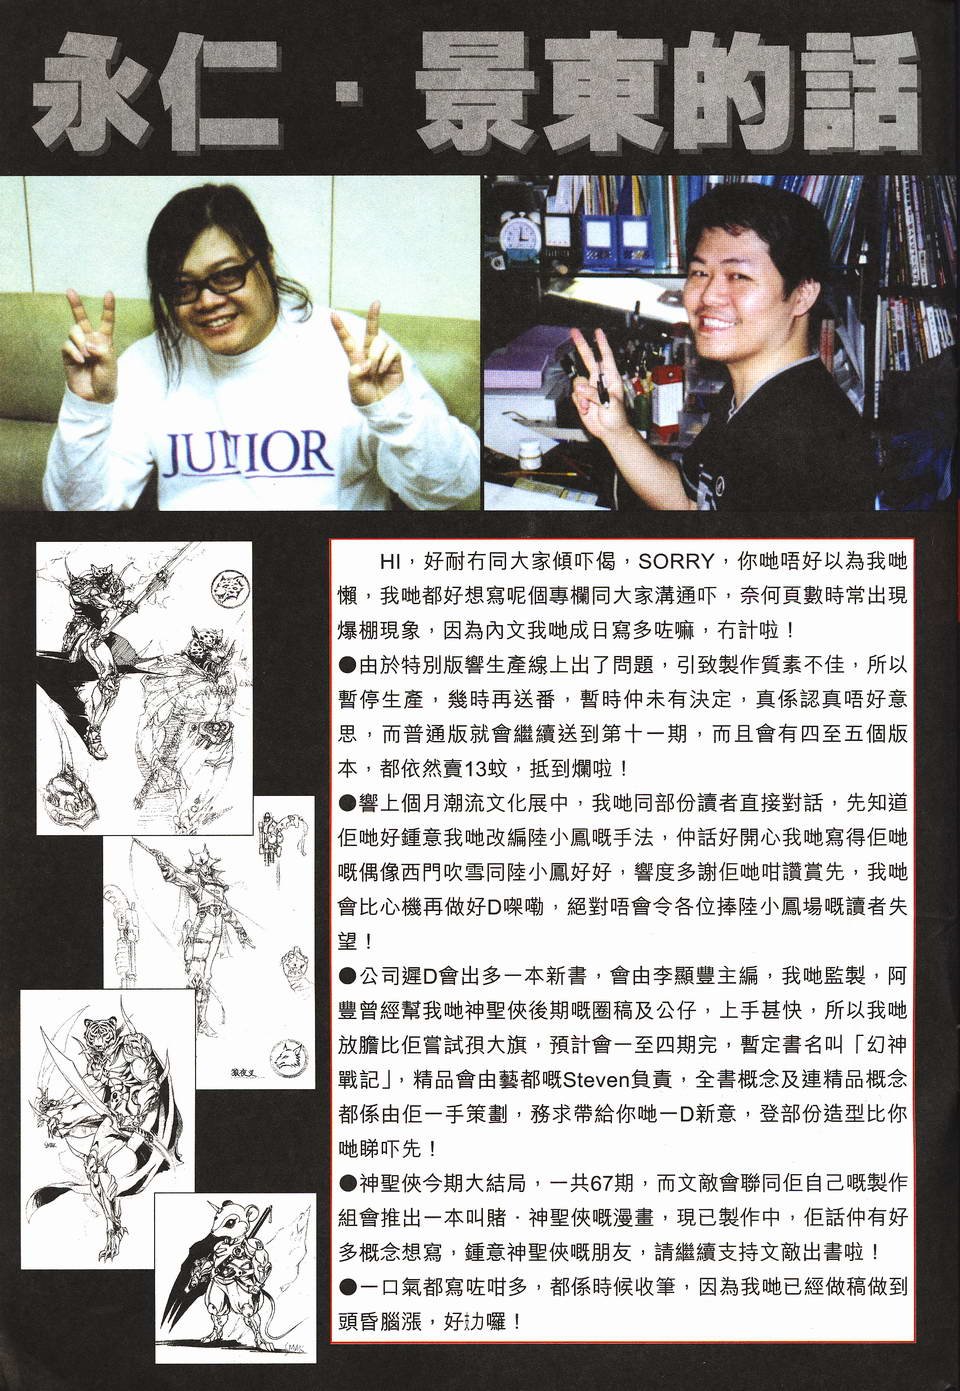 永仁．景東的話
JUNIOR
HI，好耐冇同大家傾吓偈，SORRY，你哋唔好以為我哋
懶，我哋都好想寫呢個專欄同大家溝通吓，奈何頁數時常出現
爆棚現象，因為內文我哋成日寫多咗嘛，冇計啦！
●由於特別版響生產線上出了問題，引致製作質素不佳，所以
暫停生產，幾時再送番，暫時仲未有決定，真係認真唔好意
思，而普通版就會繼續送到第十一期，而且會有四至五個版
本，都依然賣13蚊，抵到爛啦！
●響上個月潮流文化展中，我哋同部份讀者直接對話，先知道
佢哋好鍾意我哋改編陸小鳳嘅手法，仲話好開心我哋寫得佢哋
嘅偶像西門吹雪同陸小鳳好好，響度多謝佢哋咁讚賞先，我哋
會比心機再做好D㗎嘞，絕對唔會令各位捧陸小鳳場嘅讀者失
望！
●公司遲D會出多一本新書，會由李顯豐主編，我哋監製，阿
豐曾經幫我哋神聖俠後期嘅圈稿及公仔，上手甚快，所以我哋
放膽比佢嘗試孭大旗，預計會一至四期完，暫定書名叫「幻神
戰記」，精品會由藝都嘅Steven負責，全書概念及連精品概念
都係由佢一手策劃，務求帶給你哋一D新意，登部份造型比你
哋睇吓先！
●神聖俠今期大結局，一共67期，而文敵會聯同佢自己嘅製作
組會推出一本叫賭．神聖俠嘅漫畫，現已製作中，佢話仲有好
多概念想寫，鍾意神聖俠嘅朋友，請繼續支持文敵出書啦！
●一口氣都寫咗咁多，都係時候收筆，因為我哋已經做稿做到
頭昏腦漲，好攰囉！